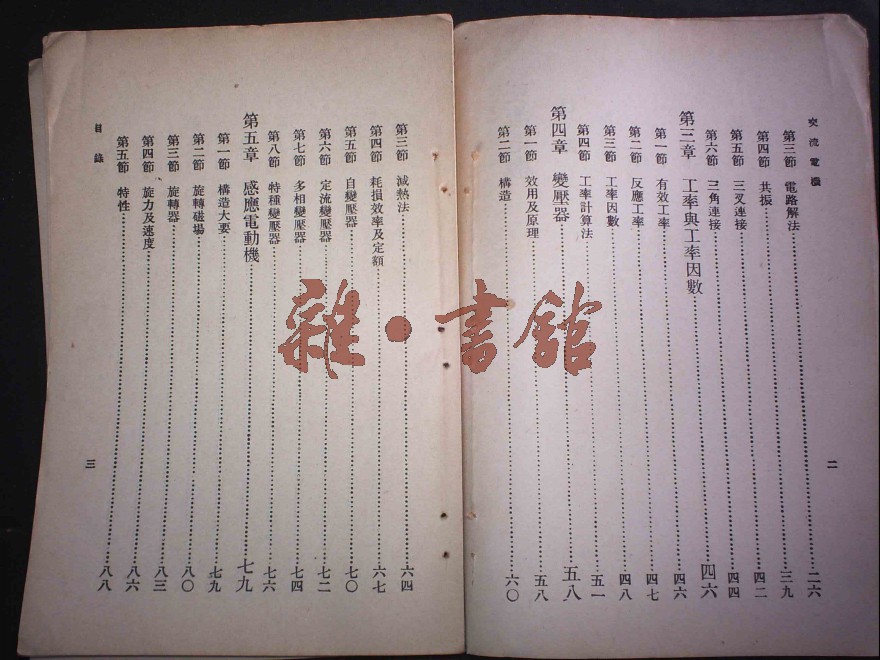 交流電機
二
第三節 電路解法……二六
第四節 共振……三九
第五節 三叉連接……四二
第六節 三角連接……四四
第三章 工率與工率因數……四六
第一節 有效工率……四六
第二節 反應工率……四七
第三節 工率因數……四八
第四節 工率計算法……五一
第四章 變壓器……五八
第一節 效用及原理……五八
第二節 構造……六〇
第三節 減熱法……六四
第四節 耗損效率及定額……六七
第五節 自變壓器……七〇
第六節 定流變壓器……七二
第七節 多相變壓器……七四
第八節 特種變壓器……七六
第五章 感應電動機……七九
第一節 構造大要……七九
第二節 旋轉磁場……八〇
第三節 旋轉器……八三
第四節 旋力及速度……八六
第五節 特性……八八
目錄
三
雜·書館